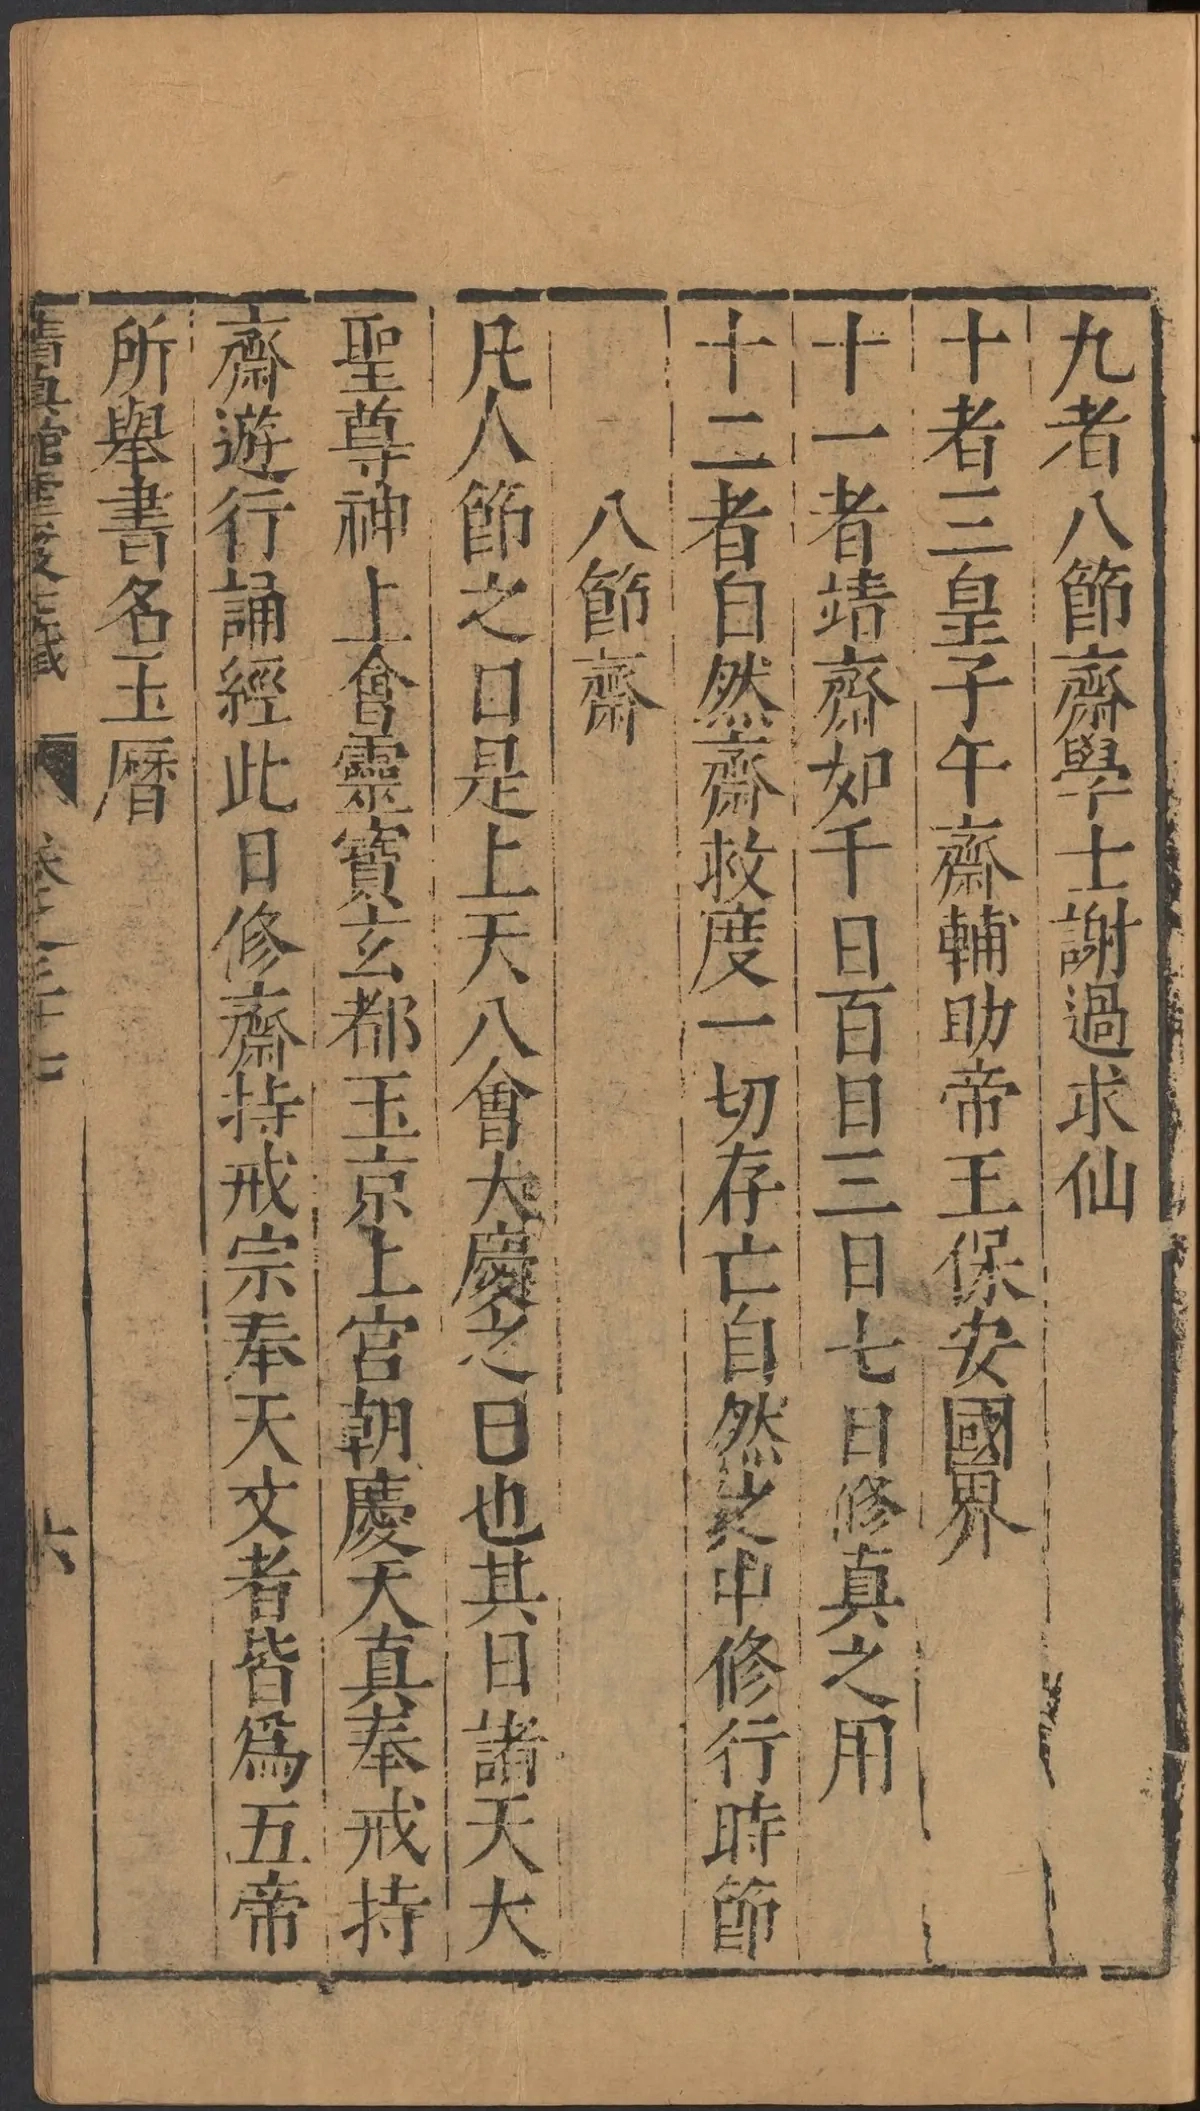 九者八節齋學士謝過求仙
十者三皇子午齋輔助帝王保安國界
十一者靖齋如千日百日三日七日修真之用
十二者自然齋救度一切存亡自然之中修行時節
八節齋
凡人節之日是上天八會大慶之日也其日諸天大
聖尊神上會靈寶玄都玉京上宮朝慶天真奉戒持
齋遊行誦經此日修齋持戒宗奉天文者皆爲五帝
所舉書名玉曆
清真館雲笈七籤 卷之三十七 六